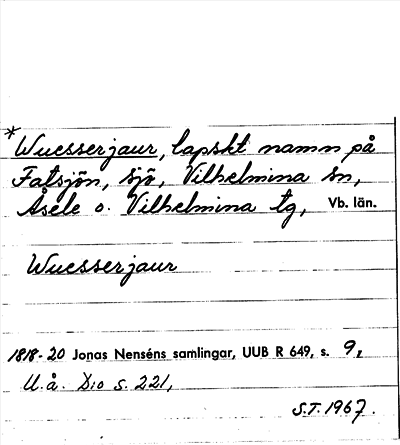 *Wuesserjaur, lapskt namn på
Fatsjön, sjö, Vilhelmina sn,
Åsele o. Vilhelmina tg, Vb. län.
Wuesserjaur
1818-20 Jonas Nenséns samlingar, UUB R 649, s. 9,
U.å. D:o s. 221,
S.T. 1967.